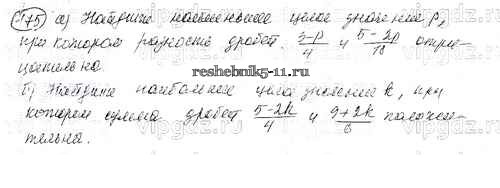 175 а) Найдите наименьшее целое значение p,
при котором разность дробей 3-p/4 и 5-2p/18 отри-
цательна.
reshebnik5-11.ru
б) Найдите наибольшее целое значение k, при
котором сумма дробей 5-2k/4 и 9+2k/6 положи-
тельна.